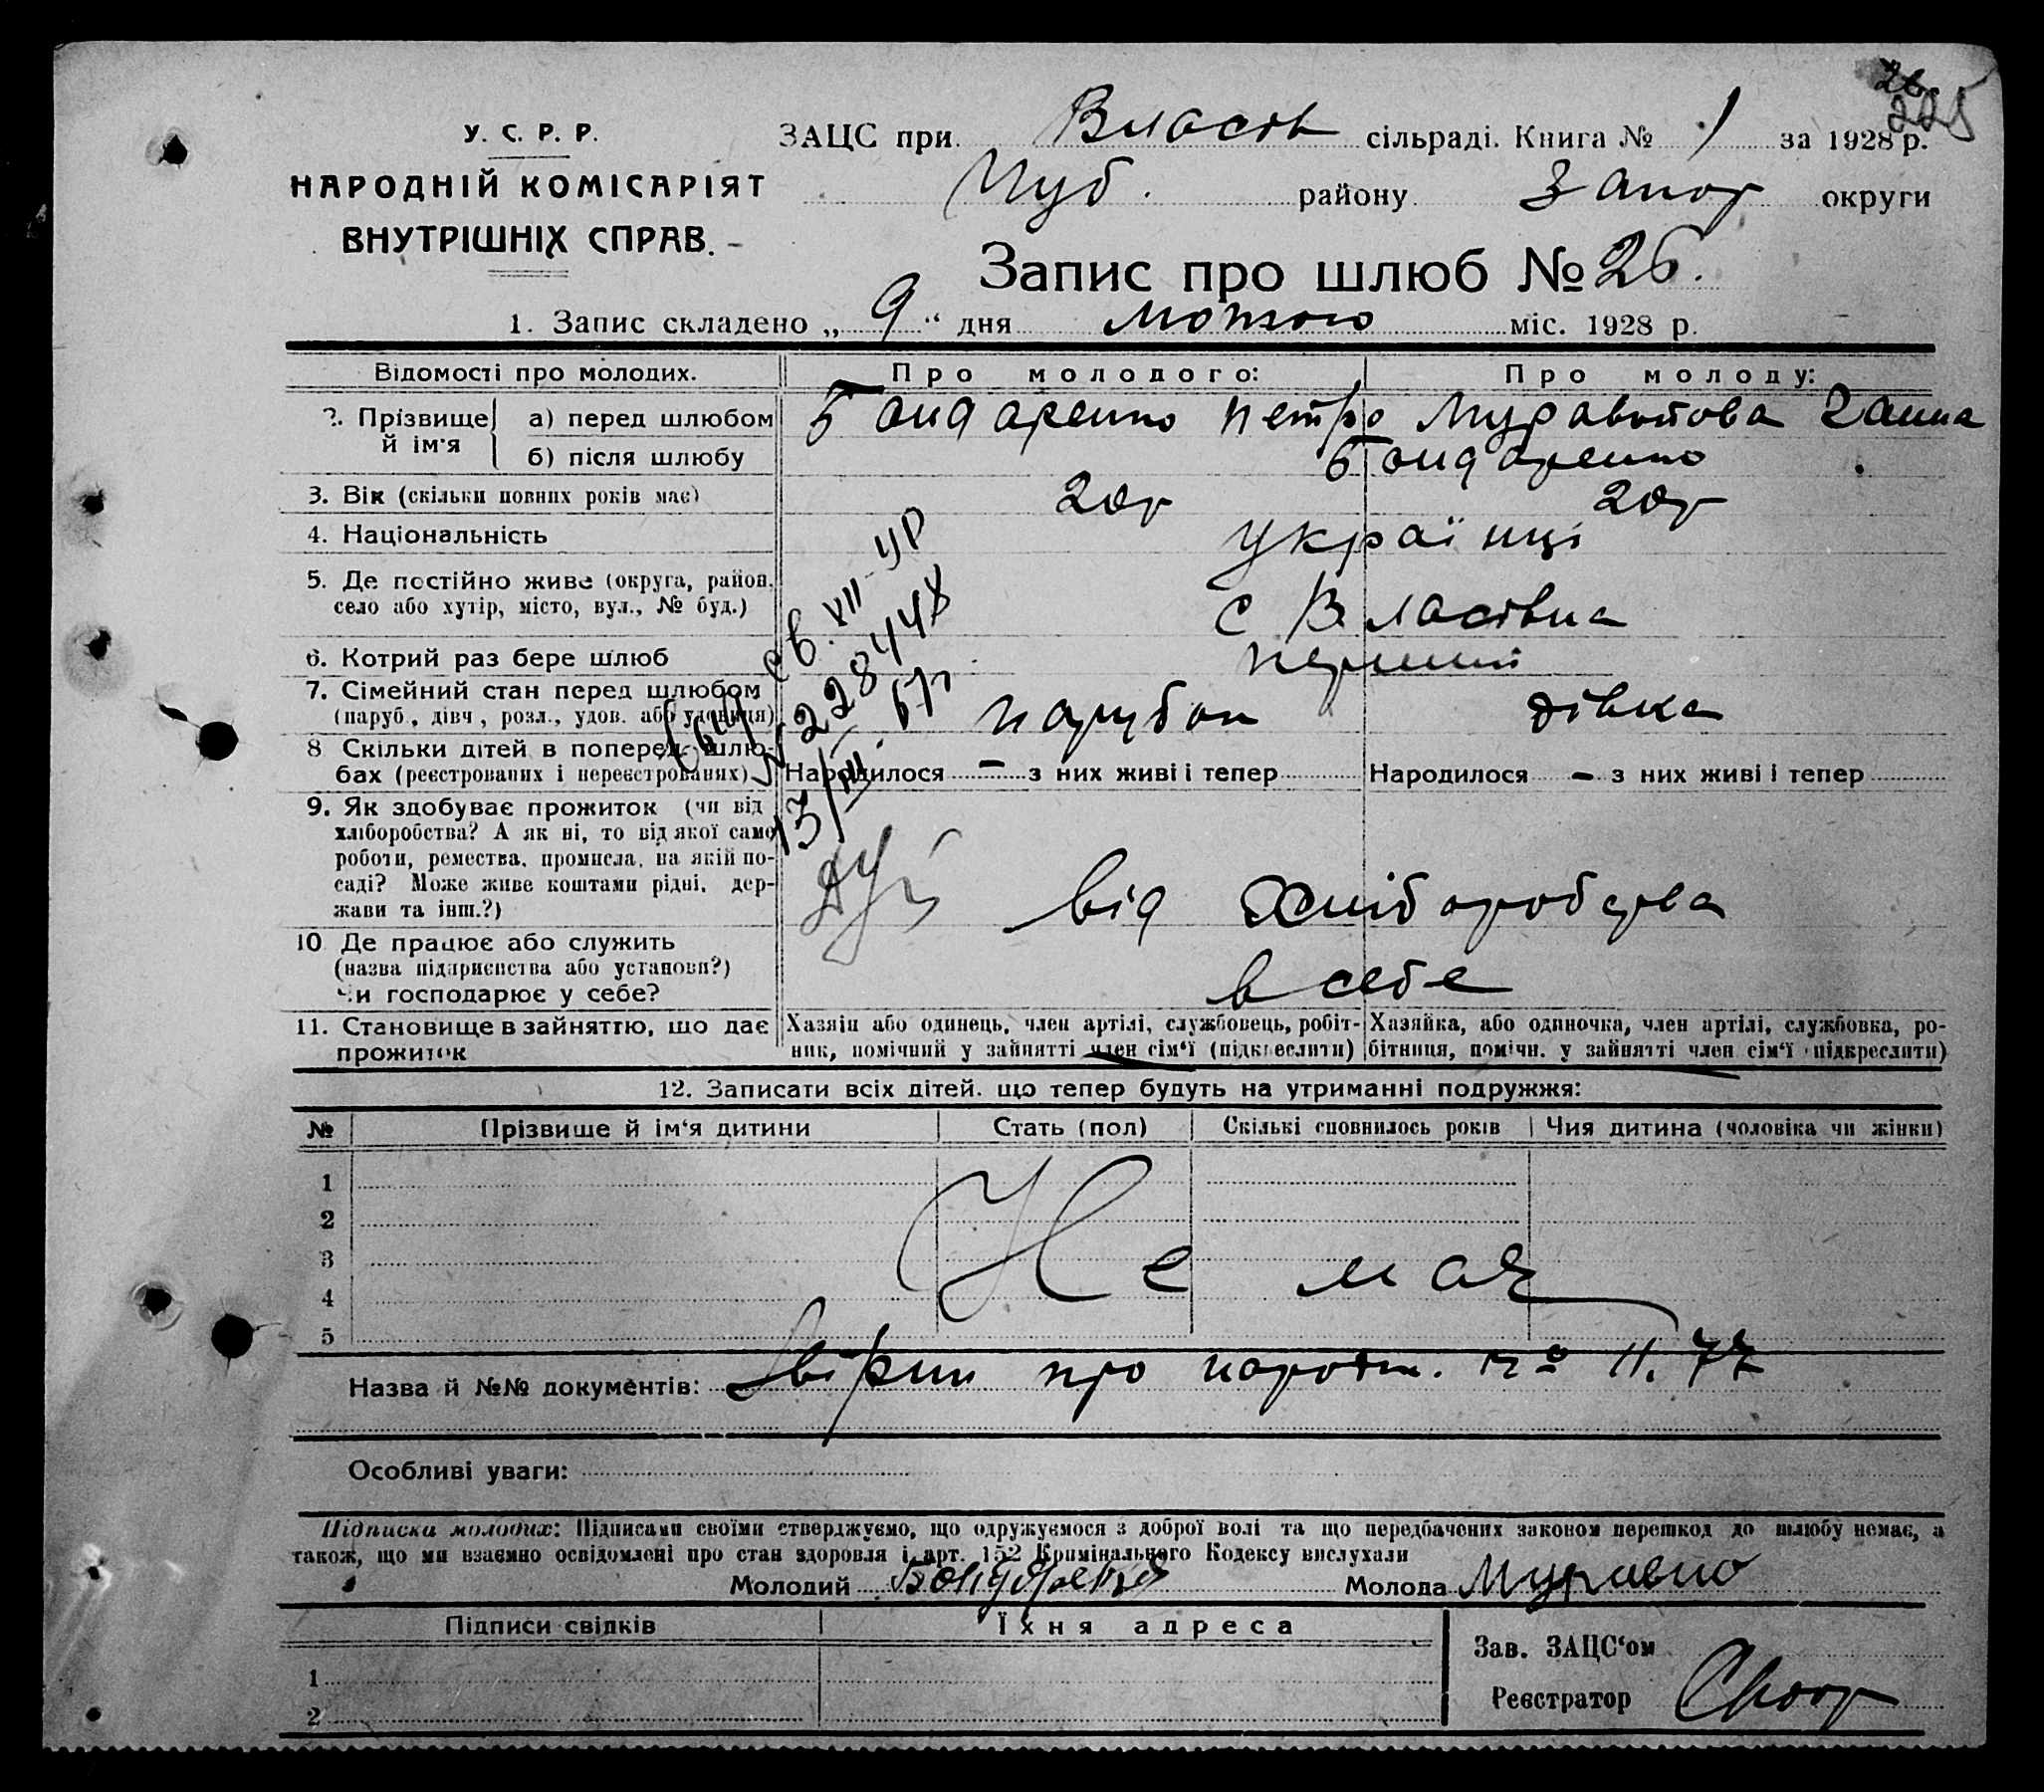 У. С. Р. Р.
НАРОДНІЙ КОМІСАРІЯТ
ВНУТРІШНІХ СПРАВ.
26
225
ЗАЦС при Власів сільраді. Книга № 1 за 1928 р.
Чуб. району Запор округи
Запис про шлюб № 26.
1. Запис складено „ 9 “ дня лютого міс. 1928 р.
Відомості про молодих. Про молодого: Про молоду:
2. Прізвище й ім'я а) перед шлюбом Бондаренко Петро Муравйова Ганна
б) після шлюбу Бондаренко
3. Вік (скільки повних років має) 20р 20р
4. Національність українці
5. Де постійно живе (округа, район, село або хутір, місто, вул., № буд.) с Власівка
6. Котрий раз бере шлюб перший
7. Сімейний стан перед шлюбом (паруб., дівч., розл., удов. або удовиця) парубок дівка
8 Скільки дітей в поперед. шлюбах (реєстрованих і нереєстрованих) Народилося — з них живі і тепер Народилося — з них живі і тепер
св. XII-УР
№ 228448
13/III. 67г
9. Як здобуває прожиток (чи від хліборобства? А як ні, то від якої само роботи, ремества, промисла, на якій посаді? Може живе коштами рідні, держави та інш.?) від хліборобства
10 Де працює або служить (назва підприємства або установи?) Чи господарює у себе? в себе
11. Становище в зайняттю, що дає прожиток
Хазяїн або одинець, член артілі, службовець, робітник, помічний у зайнятті член сім'ї (підкреслити)
Хазяйка, або одиночка, член артілі, службовка, робітниця, помічн. у зайнятті член сім'ї (підкреслити)
12. Записати всіх дітей, що тепер будуть на утриманні подружжя:
№ Прізвище й ім'я дитини Стать (пол) Скількі сповнилось років Чия дитина (чоловіка чи жінки)
1
2
3 Не має
4
5
Назва й №№ документів: Звірки про народж. № 11. 77
Особливі уваги:
Підписка молодих: Підписами своїми стверджуємо, що одружуємося з доброї волі та що передбачених законом перешкод до шлюбу немає, а
також, що ми взаємно освідомлені про стан здоровля і арт. 152 Кримінального Кодексу вислухали
Молодий Бондаренко Молода Муравйо
Підписи свідків Їхня адреса
Зав. ЗАЦС'ом
1
Реєстратор
2